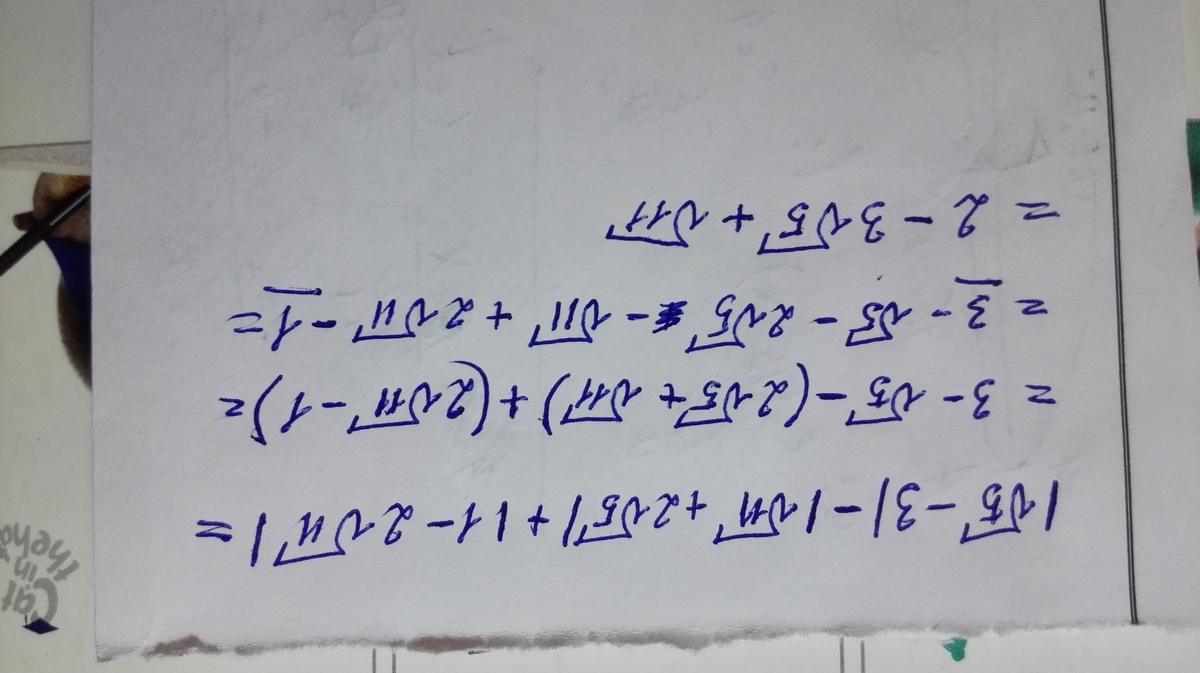 |√5 - 3| - |√11 + 2√5| + |1 - 2√11| =
= 3 - √5 - (2√5 + √11) + (2√11 - 1) =
= 3 - √5 - 2√5 - √11 + 2√11 - 1 =
= 2 - 3√5 + √11
Cat
in
the